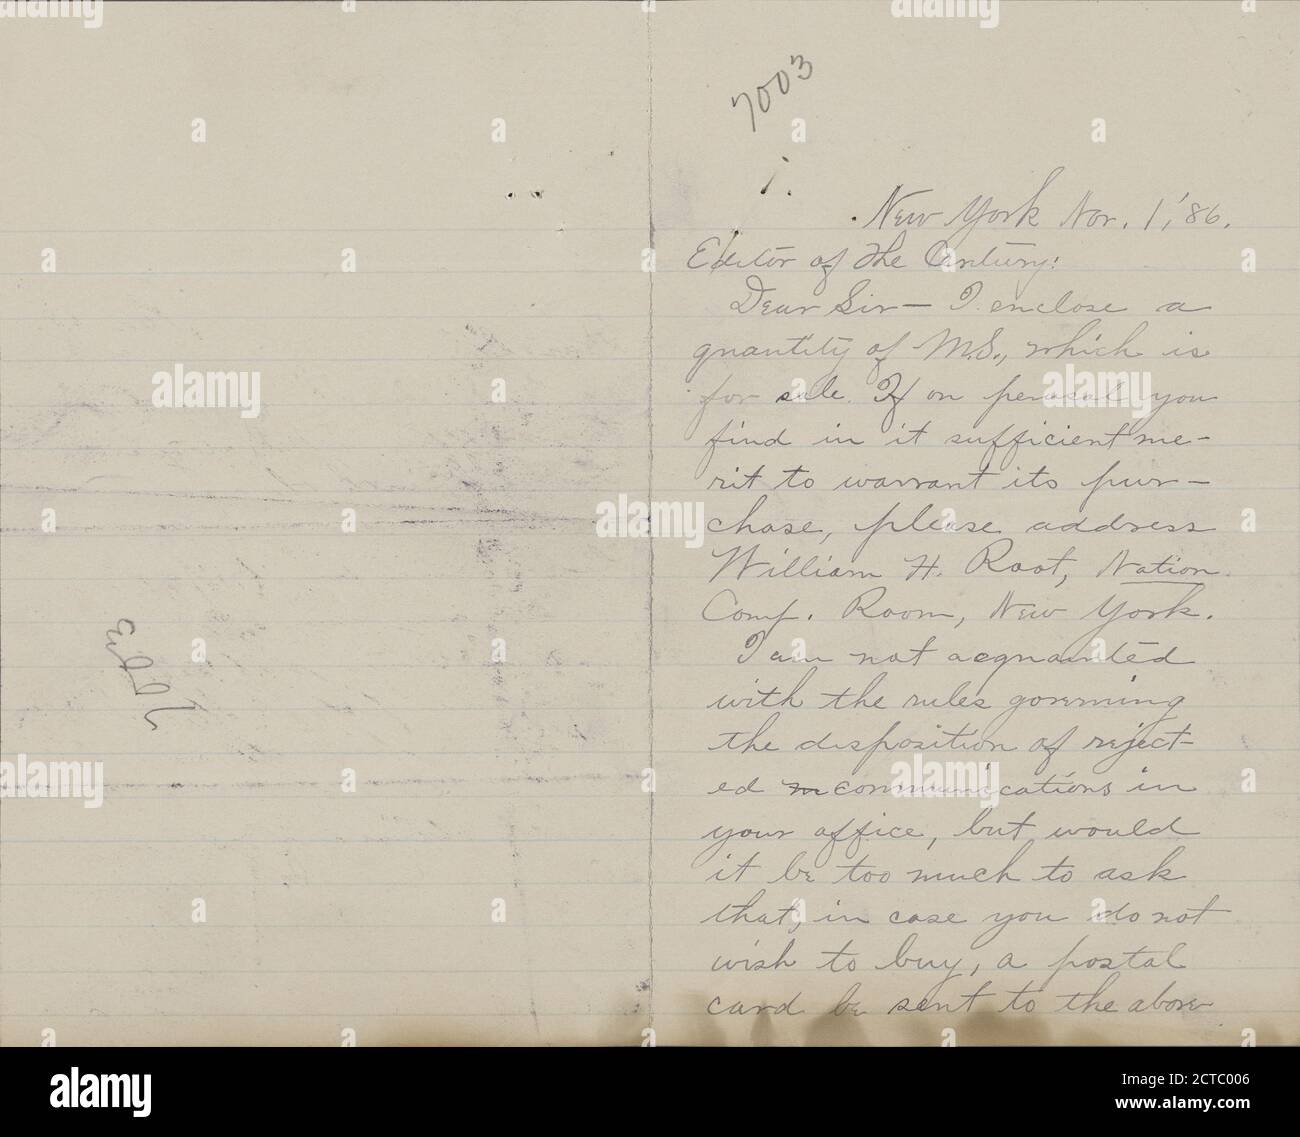 7003
New York Nov. 1,' 86.
Editor of The Century:
Dear Sir— I enclose a
quantity of M.S., which is
for sale. If on perusal you
find in it sufficient me-
rit to warrant its pur-
chase, please address
William H. Root, Nation.
Comp. Room, New York.
I am not acquainted
with the rules governing
the disposition of reject-
ed communications in
your office, but would
it be too much to ask
that, in case you do not
wish to buy, a postal
card be sent to the above
alamy
Image ID: 2CTC006
www.alamy.com